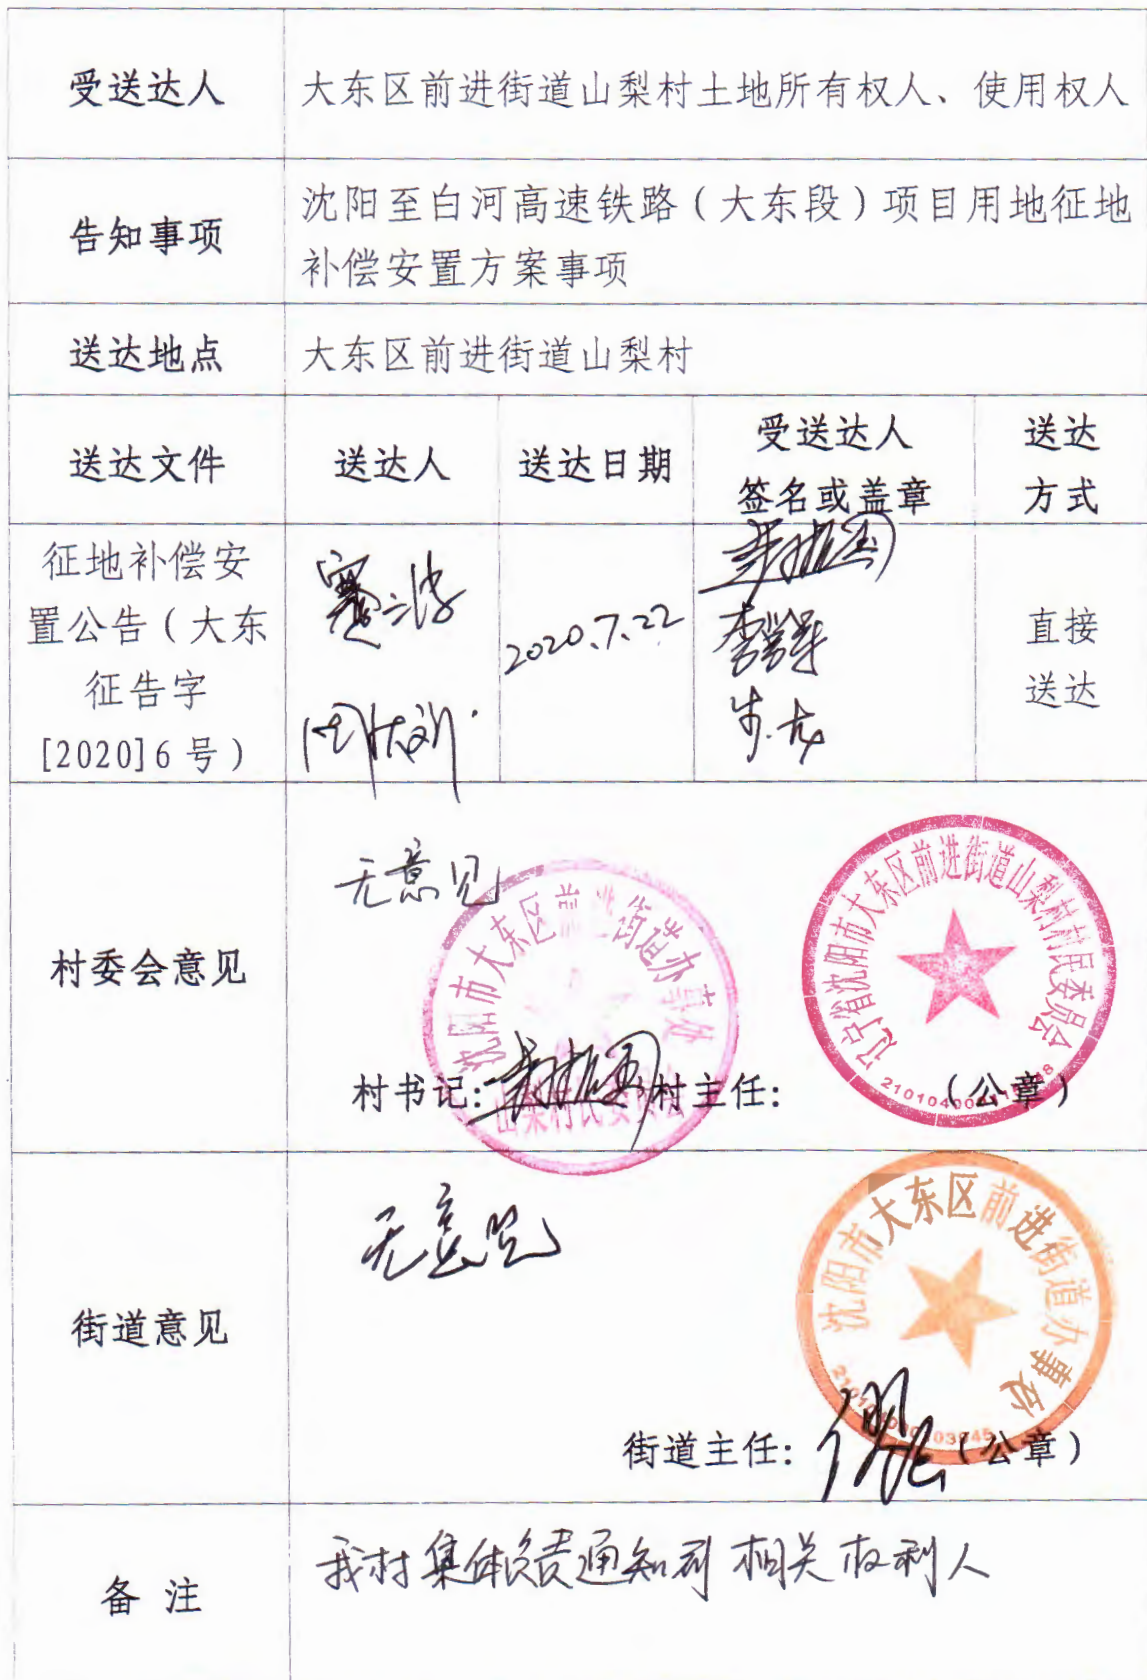 受送达人
大东区前进街道山梨村土地所有权人、使用权人
告知事项
沈阳至白河高速铁路（大东段）项目用地征地
补偿安置方案事项
送达地点
大东区前进街道山梨村
送达文件
送达人
送达日期
受送达人
签名或盖章
送达
方式
征地补偿安
置公告（大东
征告字
[2020]6号）
2020.7.22
直接
送达
村委会意见
无意见
沈阳市大东区前进街道办事处
山梨村民委员会
辽宁省沈阳市大东区前进街道山梨村村民委员会
村书记：
村主任：
（公章）
街道意见
无意见
沈阳市大东区前进街道办事处
街道主任：
（公章）
备 注
我村集体负责通知到相关权利人